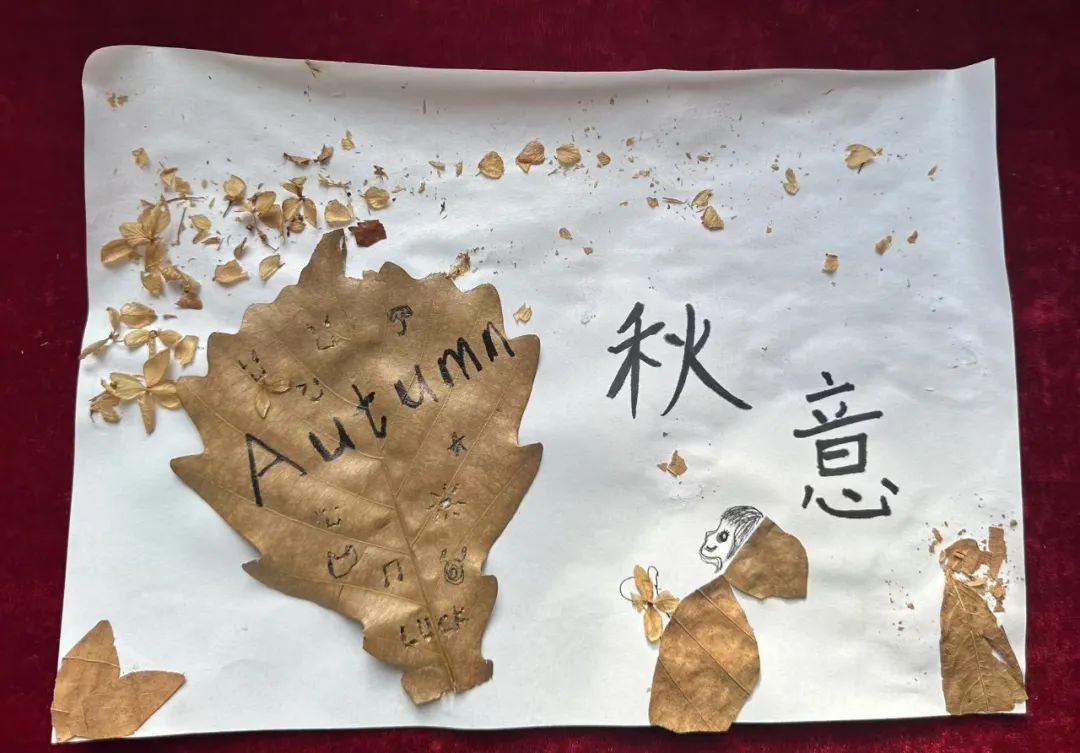 Autumn
LUCK
秋意